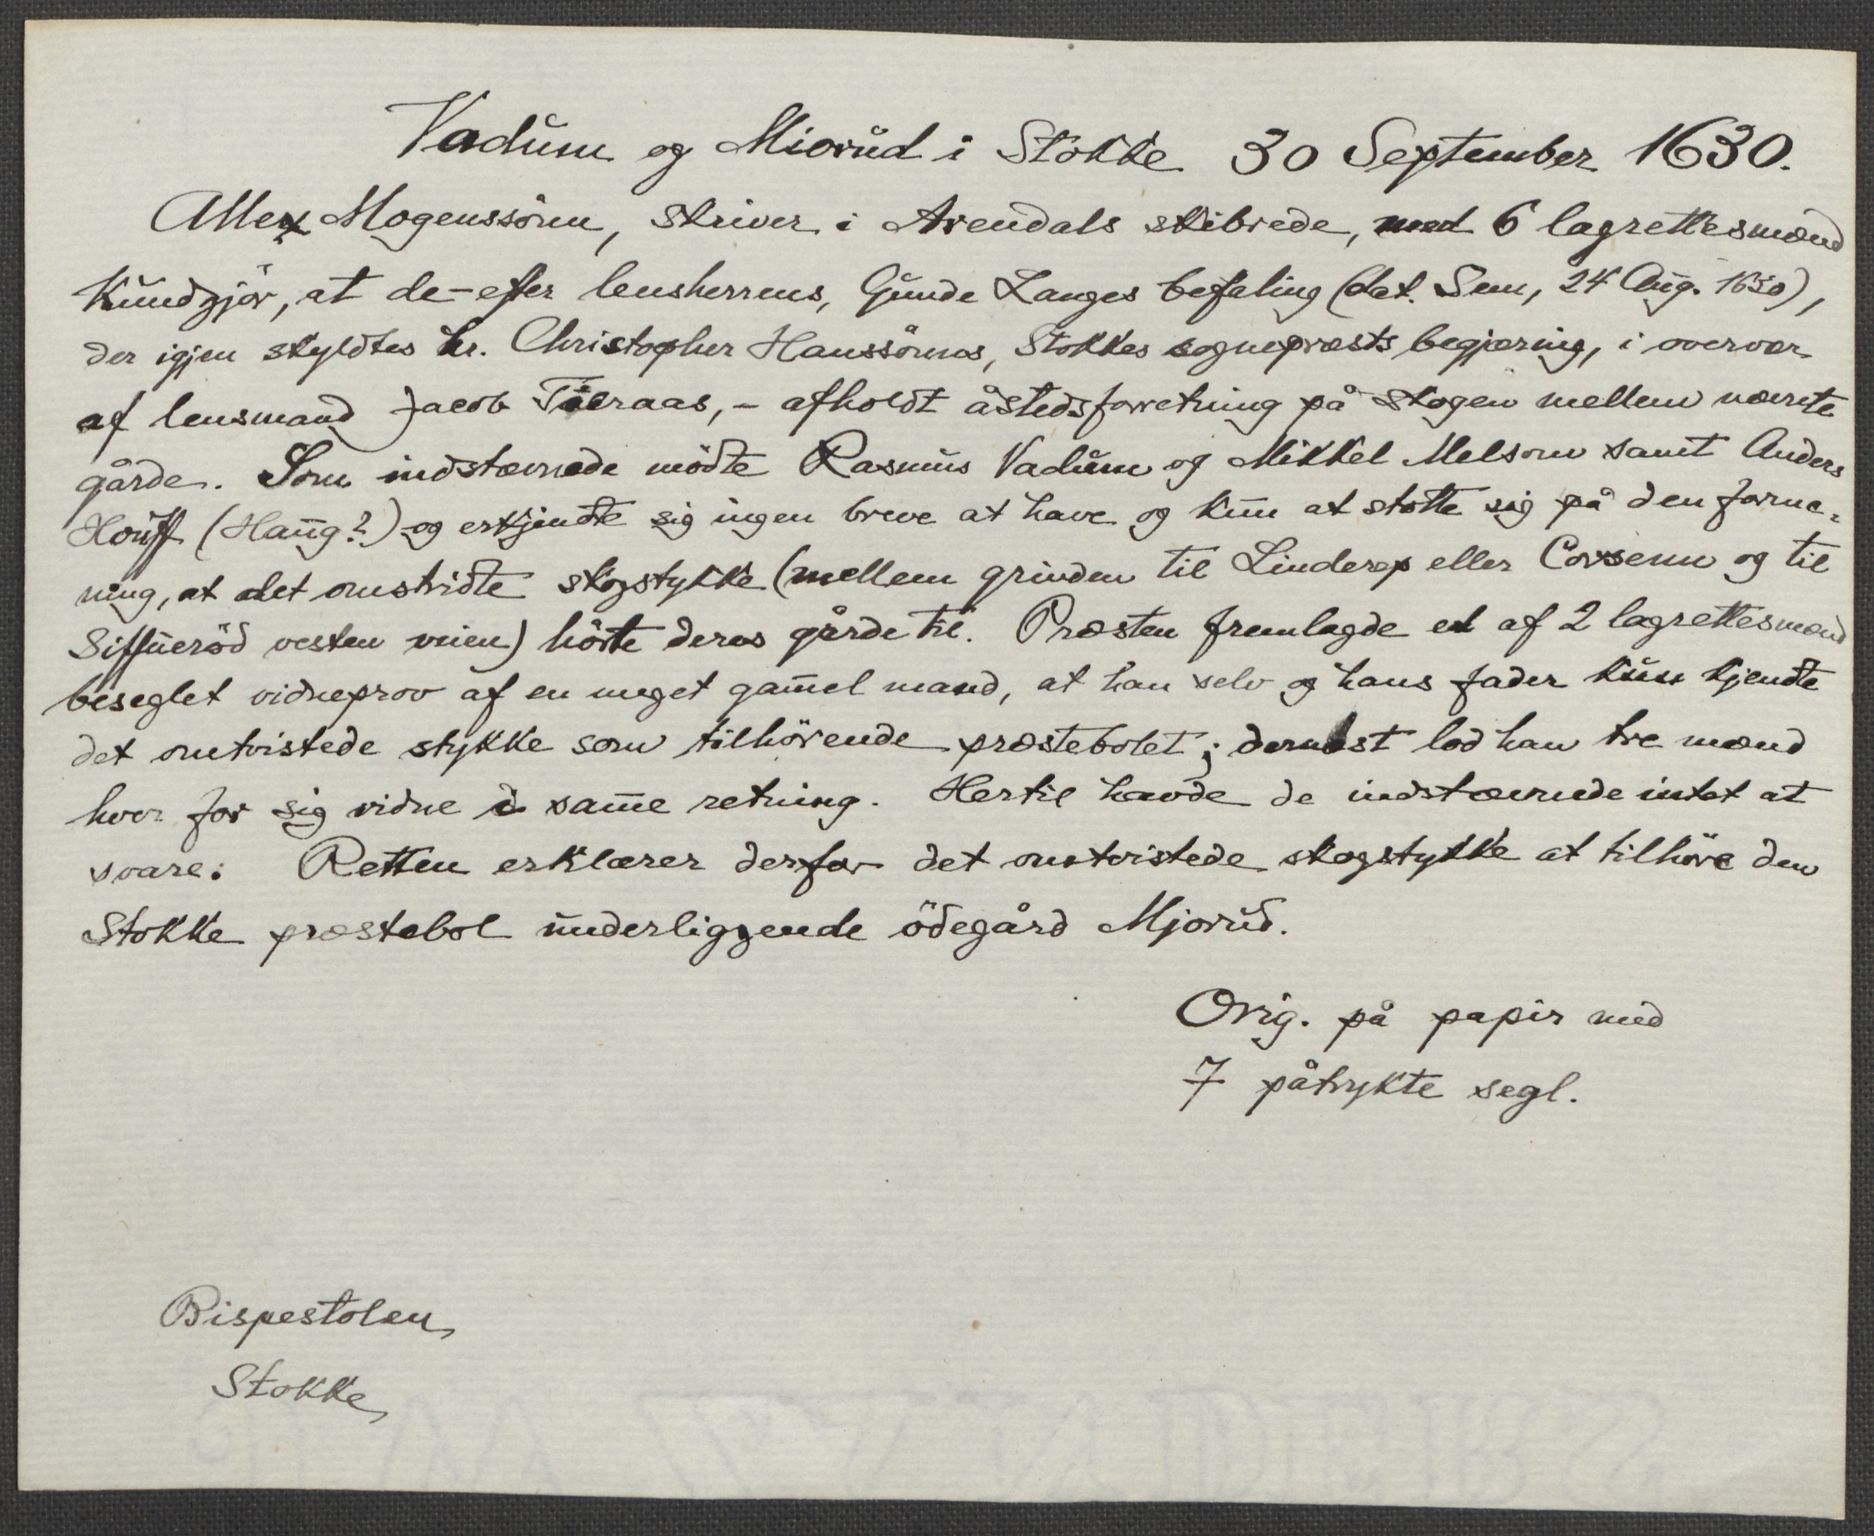 Vadum og Miorud i Stokke 30 September 1630.
Allex Mogenssönn, skriver i Arendals skibrede, med 6 lagrettesmænd
kundgjör, at de – efter lensherrens, Gunde Langes befaling (dat. Sem, 24 Aug. 1630),
der igjen skyldtes hr. Christopher Hanssönns, Stokkes sognepræsts begjæring, i overvær
af lensmand Jacob Tåeraas, – afholdt åstedsforretning på skogen mellem nævnte
gårde. Som indstævnede mödte Rasmus Vadum og Mikkel Melsom samt Anders
Houff (Haug?) og erkjendte sig ingen breve at have og kun at støtte sig på den forme-
ning, at det omstridte skogstykke (mellem grinden til Linderep eller Corsenn og til
Siffueröd vesten veien) hörte deres gårde til. Præsten fremlagde et af 2 lagrettesmænd
beseglet vidneprov af en meget gam̅el mand, at han selv og hans fader kun kjendte
det omtvistede stykke som tilhörende præstebolet; dernæst lod han tre mænd
hver for sig vidne i sam̅e retning. Hertil havde de indstævnede intet at
svare: Retten erklærer derfor det omtvistede skogstykke at tilhöre den
Stokke præstebol underliggende ödegård Mjorud.
Orig. på papir med
7 påtrykte segl.
Bispestolen,
Stokke,